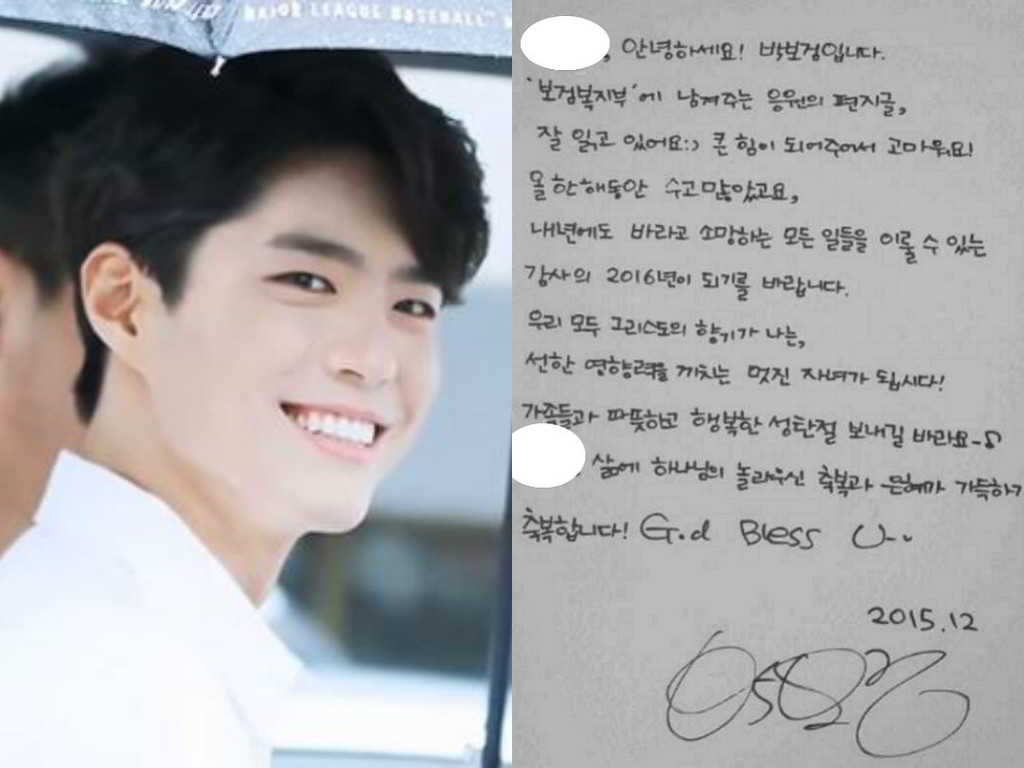 MAJOR LEAGUE BASEBALL™
, 안녕하세요! 박보검입니다.
'보검복지부'에 남겨주는 응원의 편지글,
잘 읽고 있어요:) 큰 힘이 되어주어서 고마워요!
올 한해동안 수고 많았고요,
내년에도 바라고 소망하는 모든 일들을 이룰 수 있는
감사의 2016년이 되기를 바랍니다.
우리 모두 그리스도의 향기가 나는,
선한 영향력을 끼치는 멋진 자녀가 됩시다!
가족들과 따뜻하고 행복한 성탄절 보내길 바라요~♪
삶에 하나님의 놀라우신 축복과 은혜가 가득하기
축복합니다! God Bless U..
2015.12